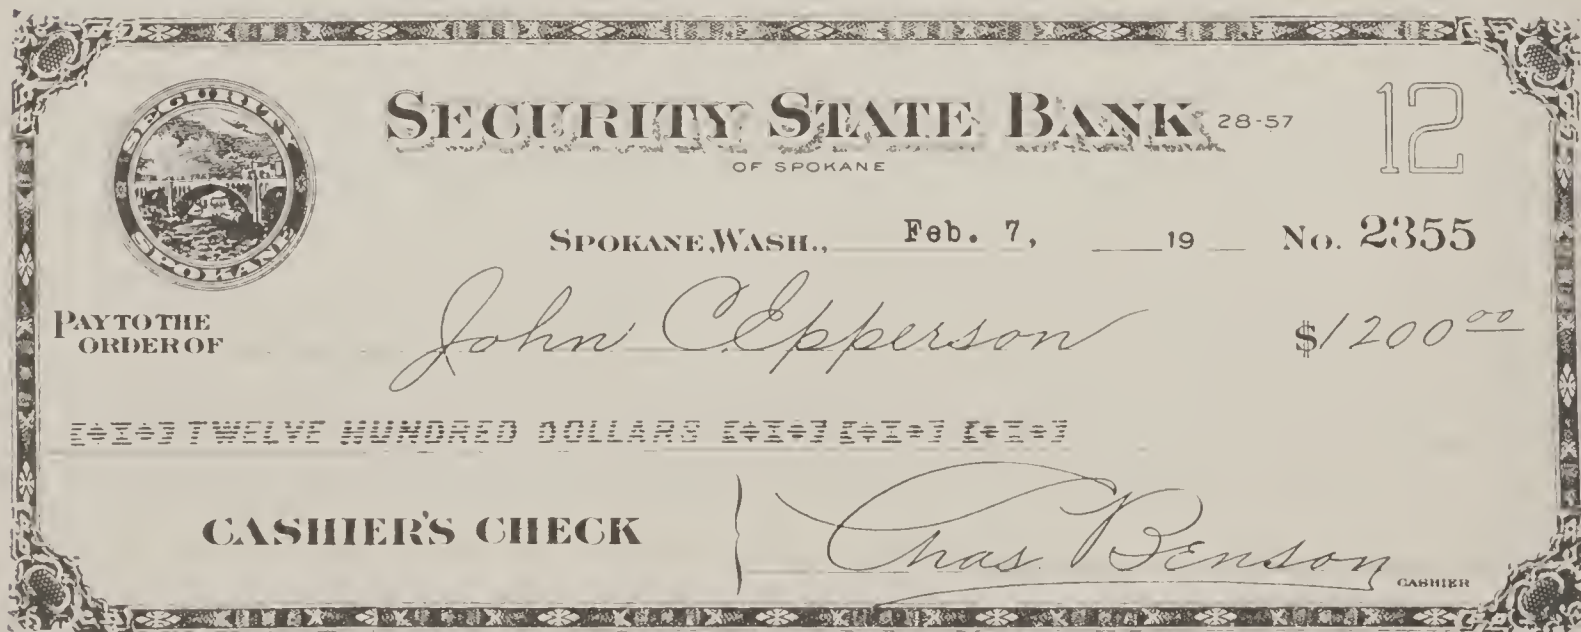 SECURITY STATE BANK 28-57
12
OF SPOKANE
SECURITY
SPOKANE
SPOKANE, WASH., Feb. 7, 19 No. 2355
PAY TO THE
ORDER OF John C. Epperson $1200 00
TWELVE HUNDRED DOLLARS
CASHIER'S CHECK Chas. Benson CASHIER